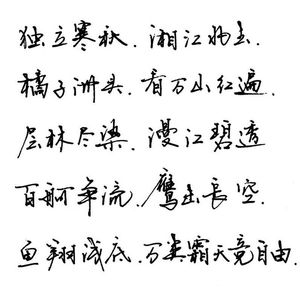 独立寒秋.湘江北去.
橘子洲头.看万山红遍
层林尽染.漫江碧透
百舸争流.鹰击長空.
鱼翔浅底.万类霜天竞自由.